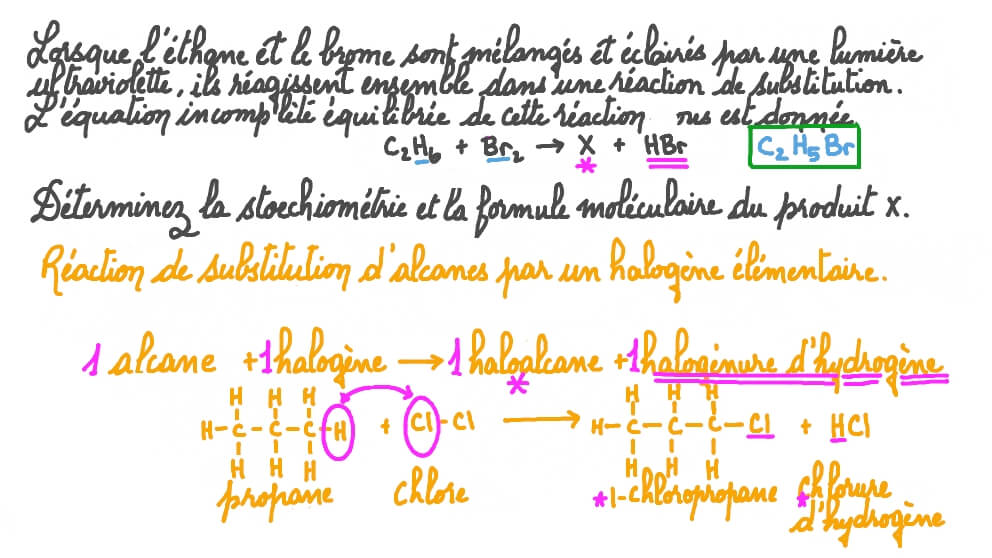 Lorsque l'éthane et le brome sont mélangés et éclairés par une lumière
ultraviolette, ils réagissent ensemble dans une réaction de substitution.
L'équation incomplète équilibrée de cette réaction nus est donnée
C₂H₆ + Br₂ → X + HBr C₂H₅Br
*
Déterminez la stoechiométrie et la formule moléculaire du produit X.
Réaction de substitution d'alcanes par un halogène élémentaire.
1 alcane + 1 halogène → 1 haloalcane + 1 halogénure d'hydrogène
*
H H H H H H
H-C-C-C-H + Cl-Cl → H-C-C-C-Cl + HCl
H H H H H H
propane chlore *1-chloropropane *chlorure
d'hydrogène